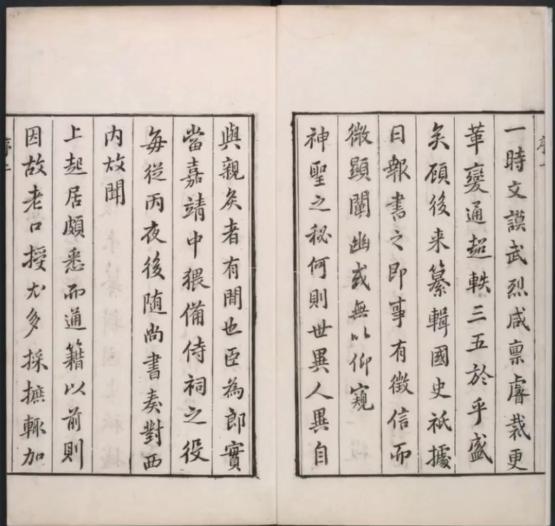 一時文謨武烈咸禀睿裁更
革變通超軼三五於乎盛
矣顧後来纂輯國史祇據
日報書之即事有徵信而
微顯闡幽或無以仰窺
神聖之秘何則世異人異自
與親矣者有間也臣為郎實
當嘉靖中猥備侍祠之役
每從丙夜後随尚書奏對西
内故聞
上起居頗悉而通籍以前則
因故老口授尤多採摭輙加